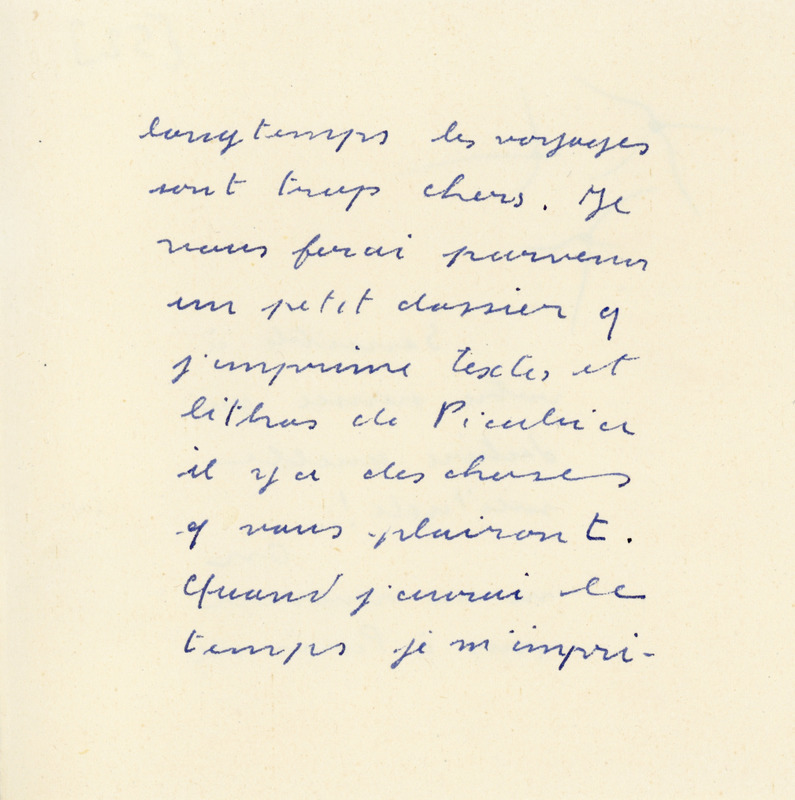 longtemps les voyages
sont trop chers. Je
vous ferai parvenir
un petit dossier q
j'imprime textes et
lithos de Picabia
il y a des choses
q vous plairont.
Quand j'aurai le
temps je m'impri-